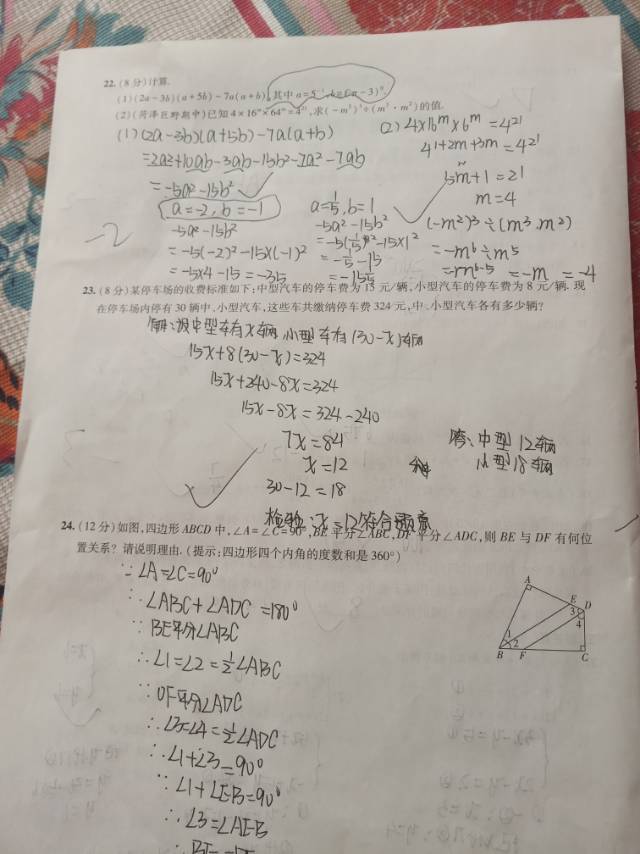 22. (8分)计算.
(1)(2a-3b)(a+5b)-7a(a+b),其中a=5⁻¹,b=(π-3)⁰.
(2)(菏泽巨野期中)已知4×16ᵐ×64ᵐ=4²¹,求(-m²)³÷(m³·m²)的值.
(1)(2a-3b)(a+5b)-7a(a+b)
=2a²+10ab-3ab-15b²-7a²-7ab
=-5a²-15b²
a=-2,b=-1
-5a²-15b²
=-5(-2)²-15×(-1)²
=-5×4-15=-35
-2
a=1/5,b=1
-5a²-15b²
=-5(1/5)²-15×1²
=-1/5-15
=-15 1/5
(2)4×16ᵐ×6ᵐ=4²¹
4¹⁺²ᵐ⁺³ᵐ=4²¹
5m+1=21
m=4
(-m²)³÷(m³·m²)
=-m⁶÷m⁵
=-m⁶⁻⁵=-m=-4
23. (8分)某停车场的收费标准如下:中型汽车的停车费为15元/辆,小型汽车的停车费为8元/辆.现
在停车场内停有30辆中、小型汽车,这些车共缴纳停车费324元,中、小型汽车各有多少辆?
解:设中型车有x辆,小型车有(30-x)辆
15x+8(30-x)=324
15x+240-8x=324
15x-8x=324-240
7x=84
x=12
30-12=18
检验:x=12符合题意
答:中型12辆
小型18辆
24. (12分)如图,四边形ABCD中,∠A=∠C=90°,BE平分∠ABC,DF平分∠ADC,则BE与DF有何位
置关系?请说明理由.(提示:四边形四个内角的度数和是360°)
∵∠A=∠C=90°
∴∠ABC+∠ADC=180°
∵BE平分∠ABC
∴∠1=∠2=½∠ABC
∵DF平分∠ADC
∴∠3=∠4=½∠ADC
∴∠1+∠3=90°
∵∠1+∠AEB=90°
∴∠3=∠AEB
A
E
D
3
4
1
2
B
F
C